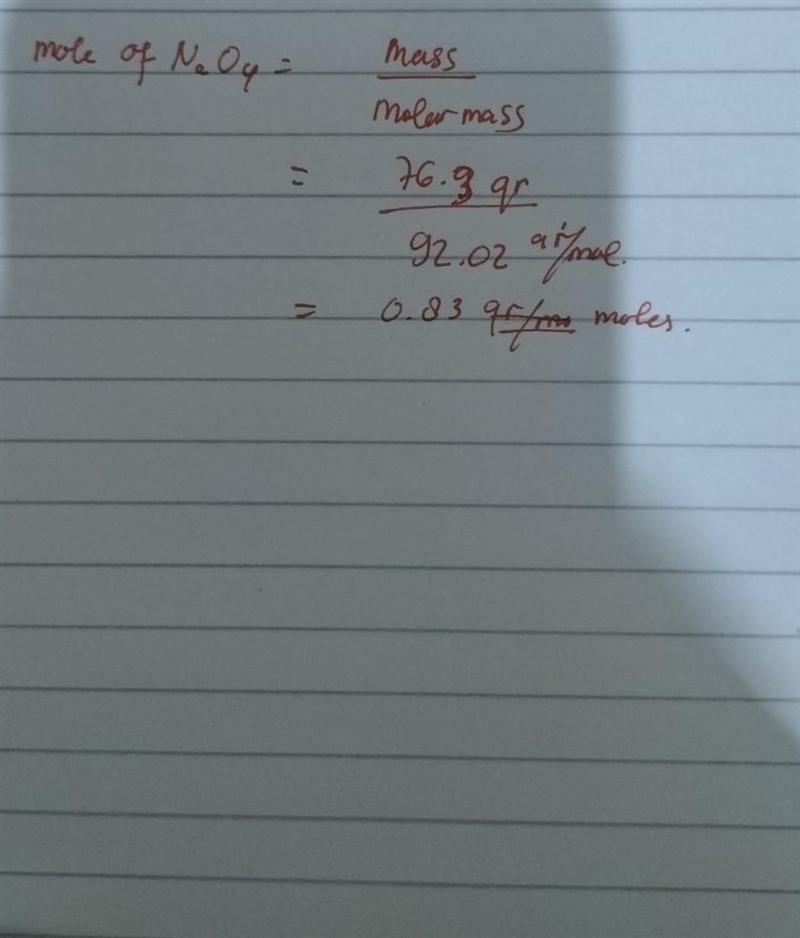 mole of N2O4 = mass
molar mass
= 76.3 gr
92.02 gr/mol.
= 0.83 gr/mo moles.